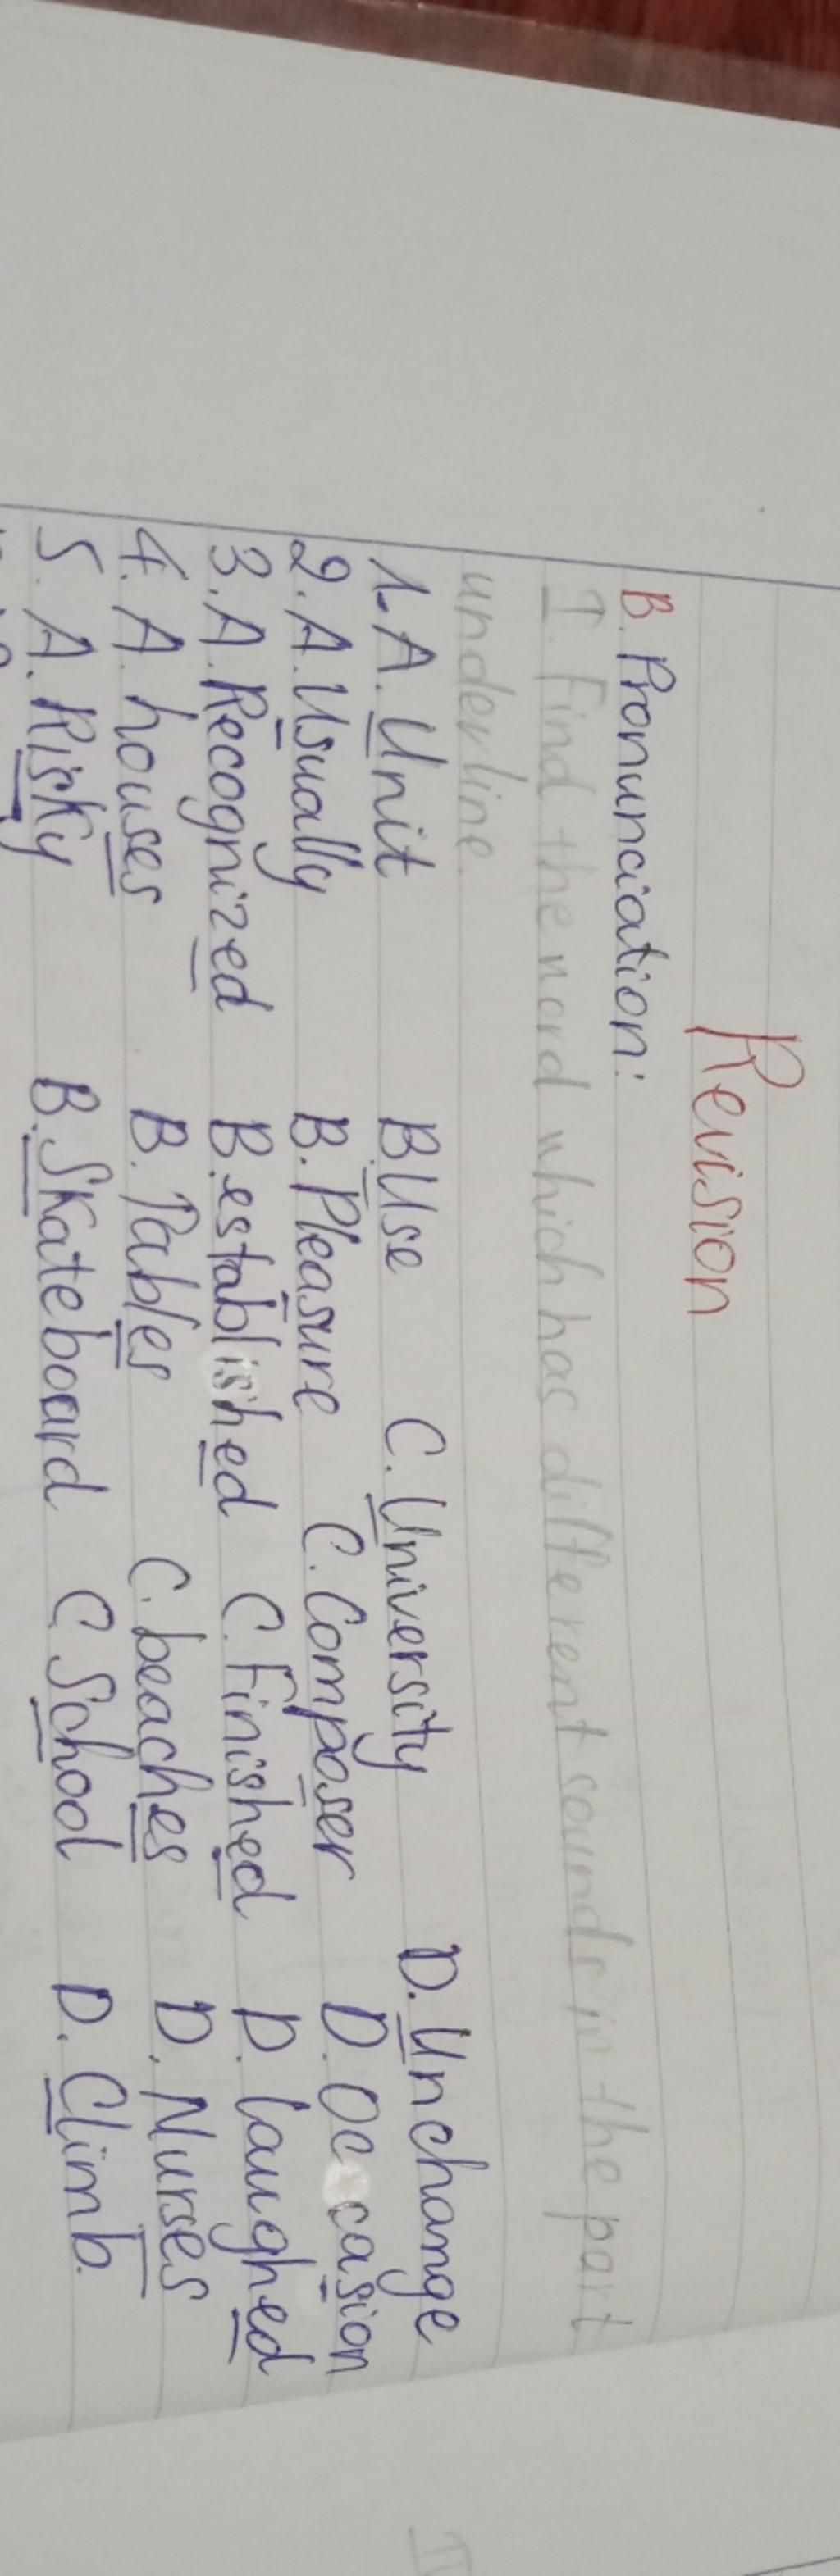 Revision
B. Pronunciation:
I. Find the word which has different sounds in the part
underline.
1. A. Unit B. Use C. University D. Unchange
2. A. Usually B. Pleasure C. Composer D. Occasion
3. A. Recognized B. established C. Finished D. laughed
4. A. houses B. Tables C. beaches D. Nurses
5. A. Risky B. Skateboard C. School D. Climb.